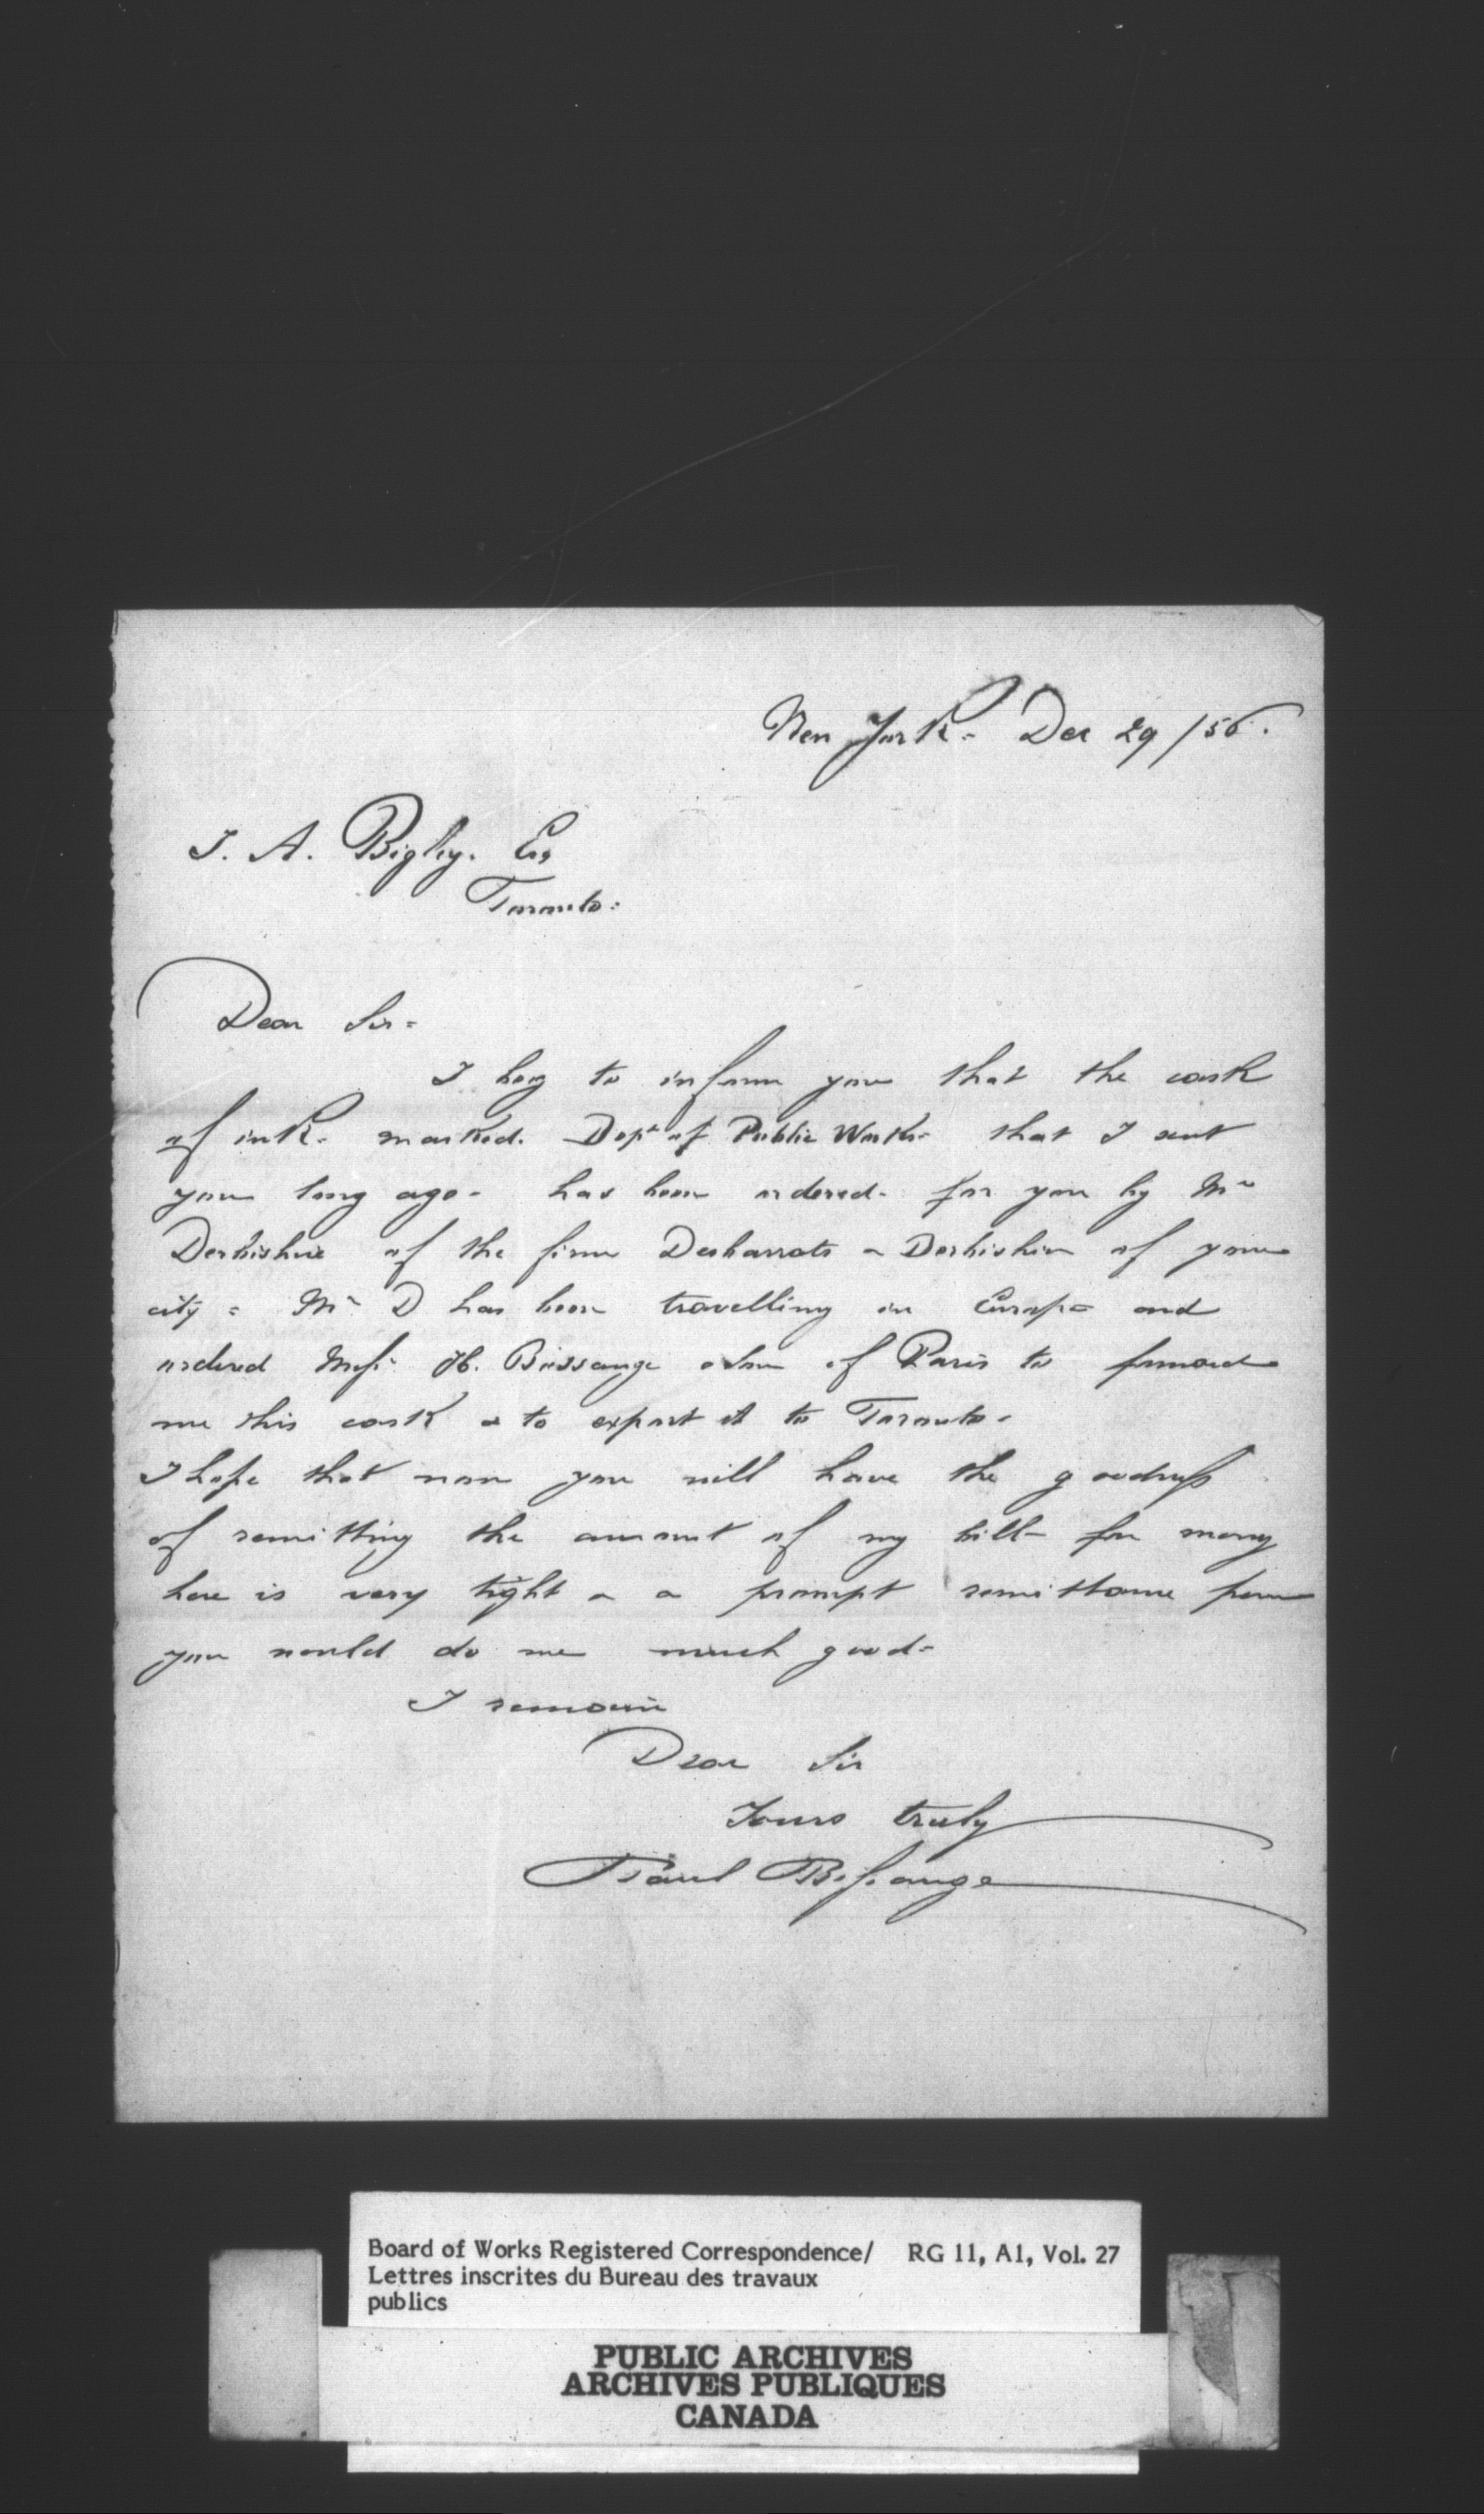 New York = Dec 29 / 56.
J. A. Bigley. Esq
Toronto =
Dear Sir =
I beg to inform you that the cask
of ink - marked. Dept of Public Works - that I sent
you long ago - has been ordered - for you by Mr
Derbishire of the firm Desbarrats & Derbishire of your
city = Mr D has been travelling in Europe and
ordered Messrs H. Bossange & Son of Paris to forward
me this cask & to export it to Toronto -
I hope that now you will have the goodness
of remitting the amount of my bill - for money
here is very tight & a prompt remittance from
you would do me much good =
I remain
Dear Sir
Yours truly
Paul Bossange
Board of Works Registered Correspondence/ RG 11, A1, Vol. 27
Lettres inscrites du Bureau des travaux
publics
PUBLIC ARCHIVES
ARCHIVES PUBLIQUES
CANADA